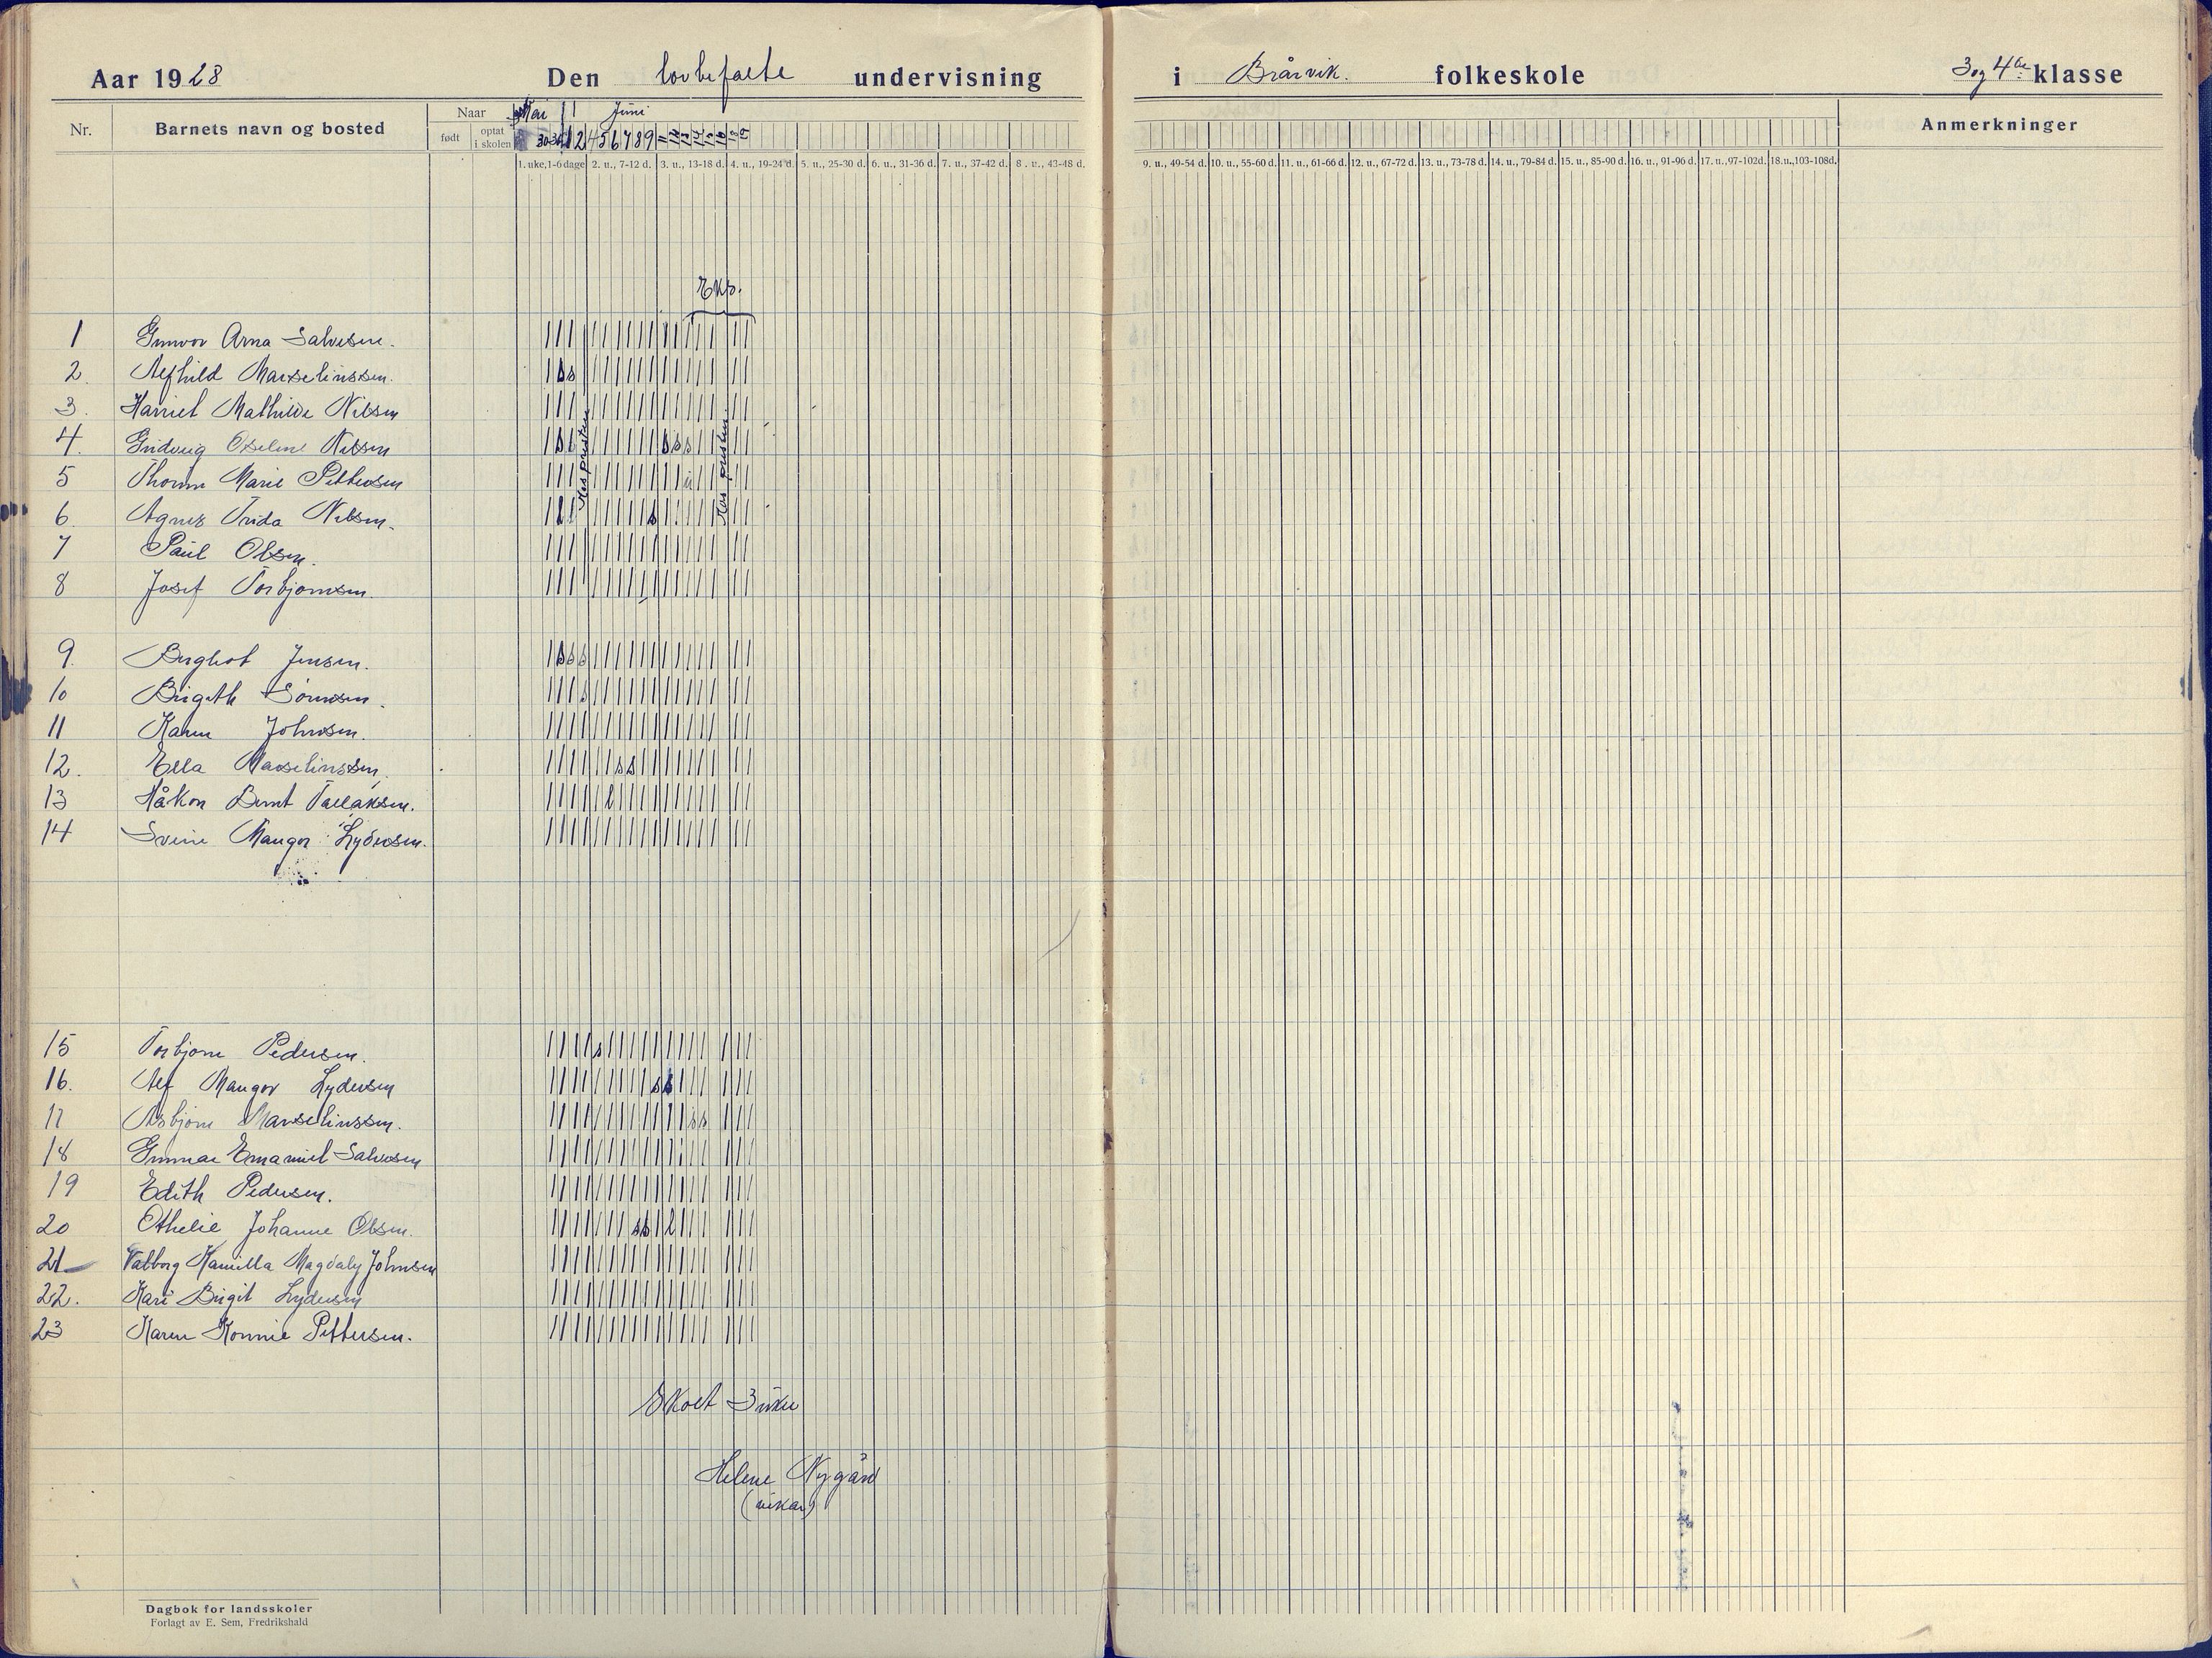 Aar 1928 Den lovbefalte undervisning i Brårvik. folkeskole 3 og 4de klasse
Nr. Barnets navn og bosted Naar født optat i skolen Mai Juni Anmerkninger
30 31 1 2 4 5 6 7 8 9 11 12 13 14 15 16 18 19
1. uke, 1-6 dage 2. u., 7-12 d. 3. u., 13-18 d. 4. u., 19-24 d. 5. u., 25-30 d. 6. u., 31-36 d. 7. u., 37-42 d. 8. u., 43-48 d. 9. u., 49-54 d. 10. u., 55-60 d. 11. u., 61-66 d. 12. u., 67-72 d. 13. u., 73-78 d. 14. u., 79-84 d. 15. u., 85-90 d. 16. u., 91-96 d. 17. u., 97-102d. 18.u.,103-108d.
1 Gunvor Arna Salvesen.
2. Alfhild Marselinssen.
3. Harriet Mathilde Nilsen
4. Gudveig Nilsen
5 Thorun Marie Pettersen
6. Agnes Frida Nilsen.
7 Paul Olsen.
8 Josef Torbjørnsen.
Hos presten
Hos presten
9. Bergliot Jensen.
10 Birgith Sørensen.
11 Karen Johnsen.
12. Ella Marselinssen.
13 Håkon Bernt Tallaksen.
14 Svein Mangor Lydersen.
15 Torbjørn Pedersen.
16. Alf Mangor Lydersen
17 Asbjørn Marselinssen.
18 Gunnar Emanuel Salvesen
19 Edith Pedersen.
20 Othelie Johanne Olsen.
21 Valborg Kamilla Magdaly Johnsen
22. Kari Birgit Lydersen
23 Karen Konnie Pettersen.
Skolt 3 uker
Helene Nygård
(vikar)
Dagbok for landsskoler
Forlagt av E. Sem, Fredrikshald